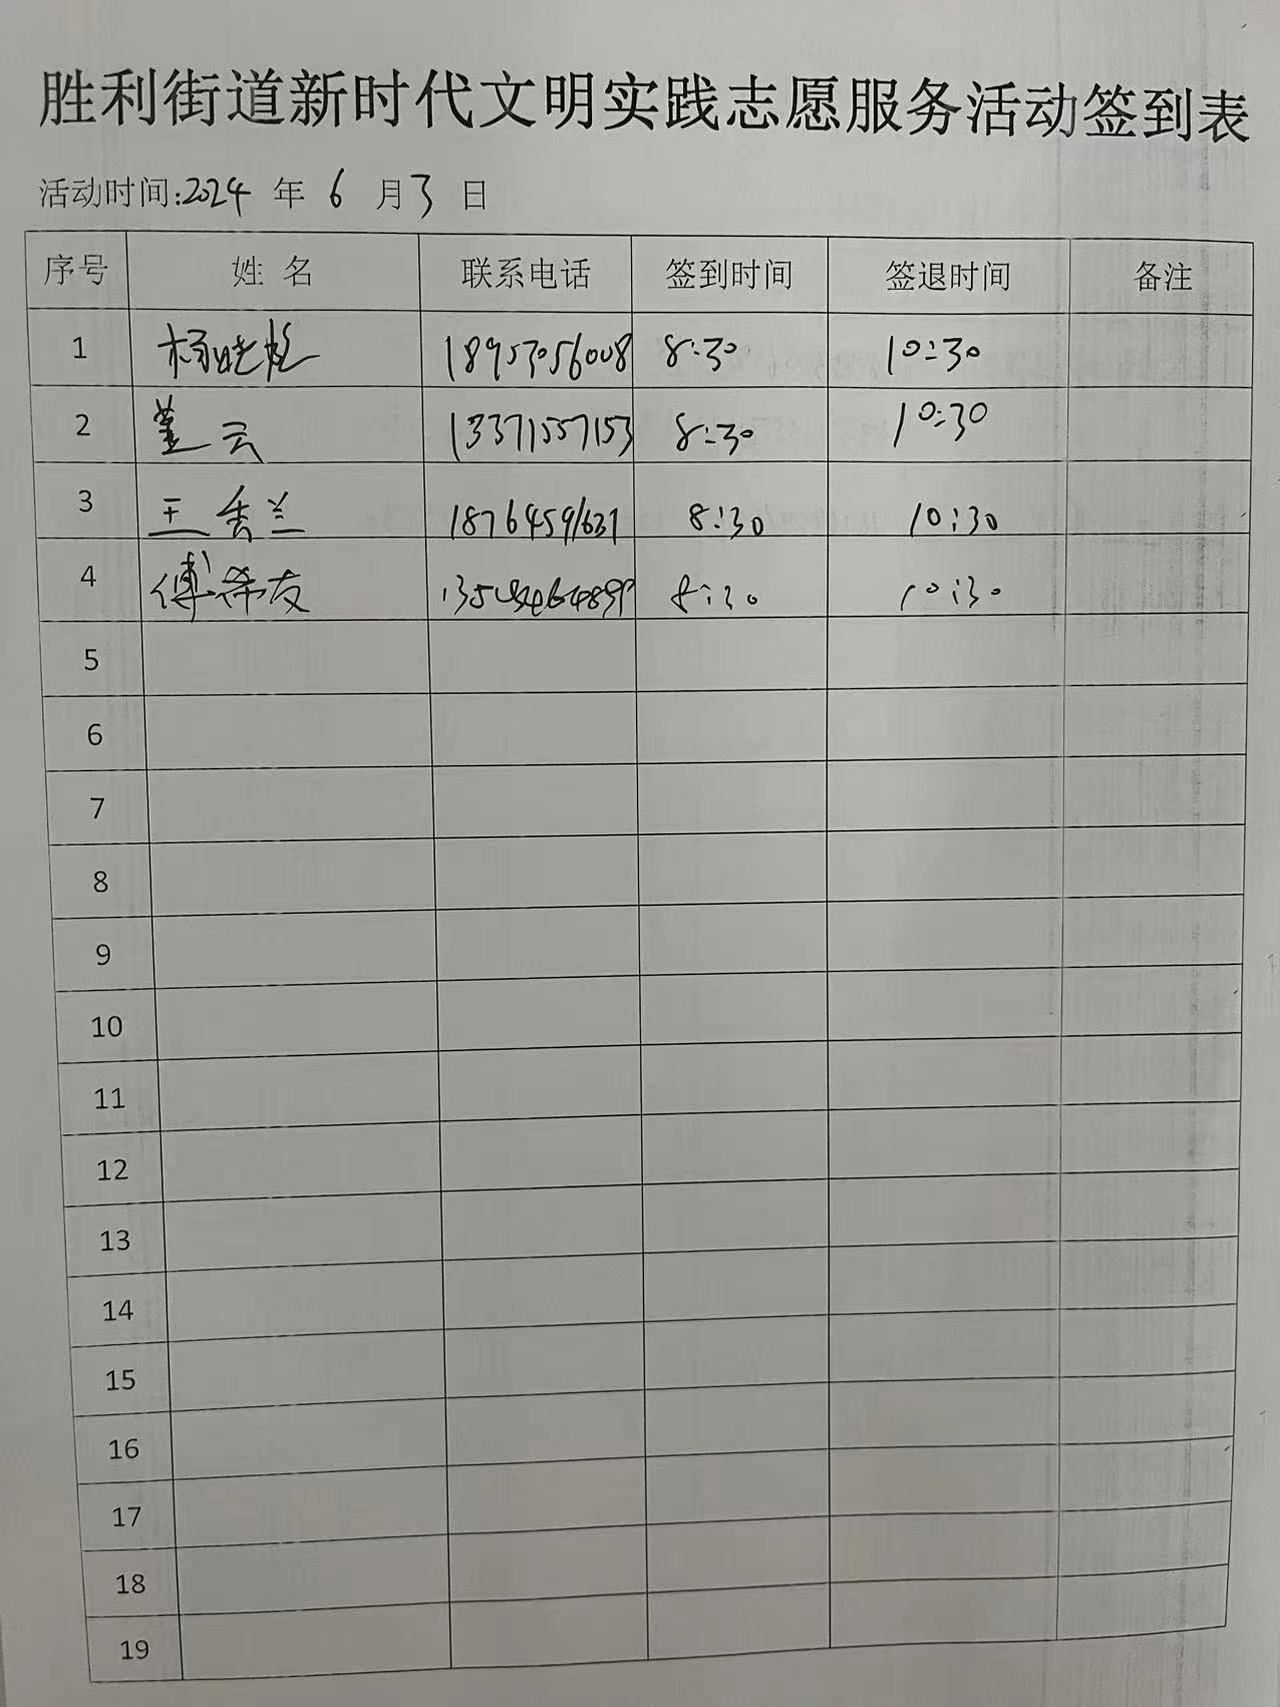 胜利街道新时代文明实践志愿服务活动签到表
活动时间:2024 年 6 月 3 日
序号 姓 名 联系电话 签到时间 签退时间 备注
1 杨晓 18953056008 8:30 10:30
2 董云 13371557153 8:30 10:30
3 王秀兰 18764591631 8:30 10:30
4 傅希友 8:30 10:30
5
6
7
8
9
10
11
12
13
14
15
16
17
18
19